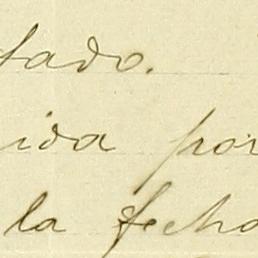 tado.
ida por
la fecha